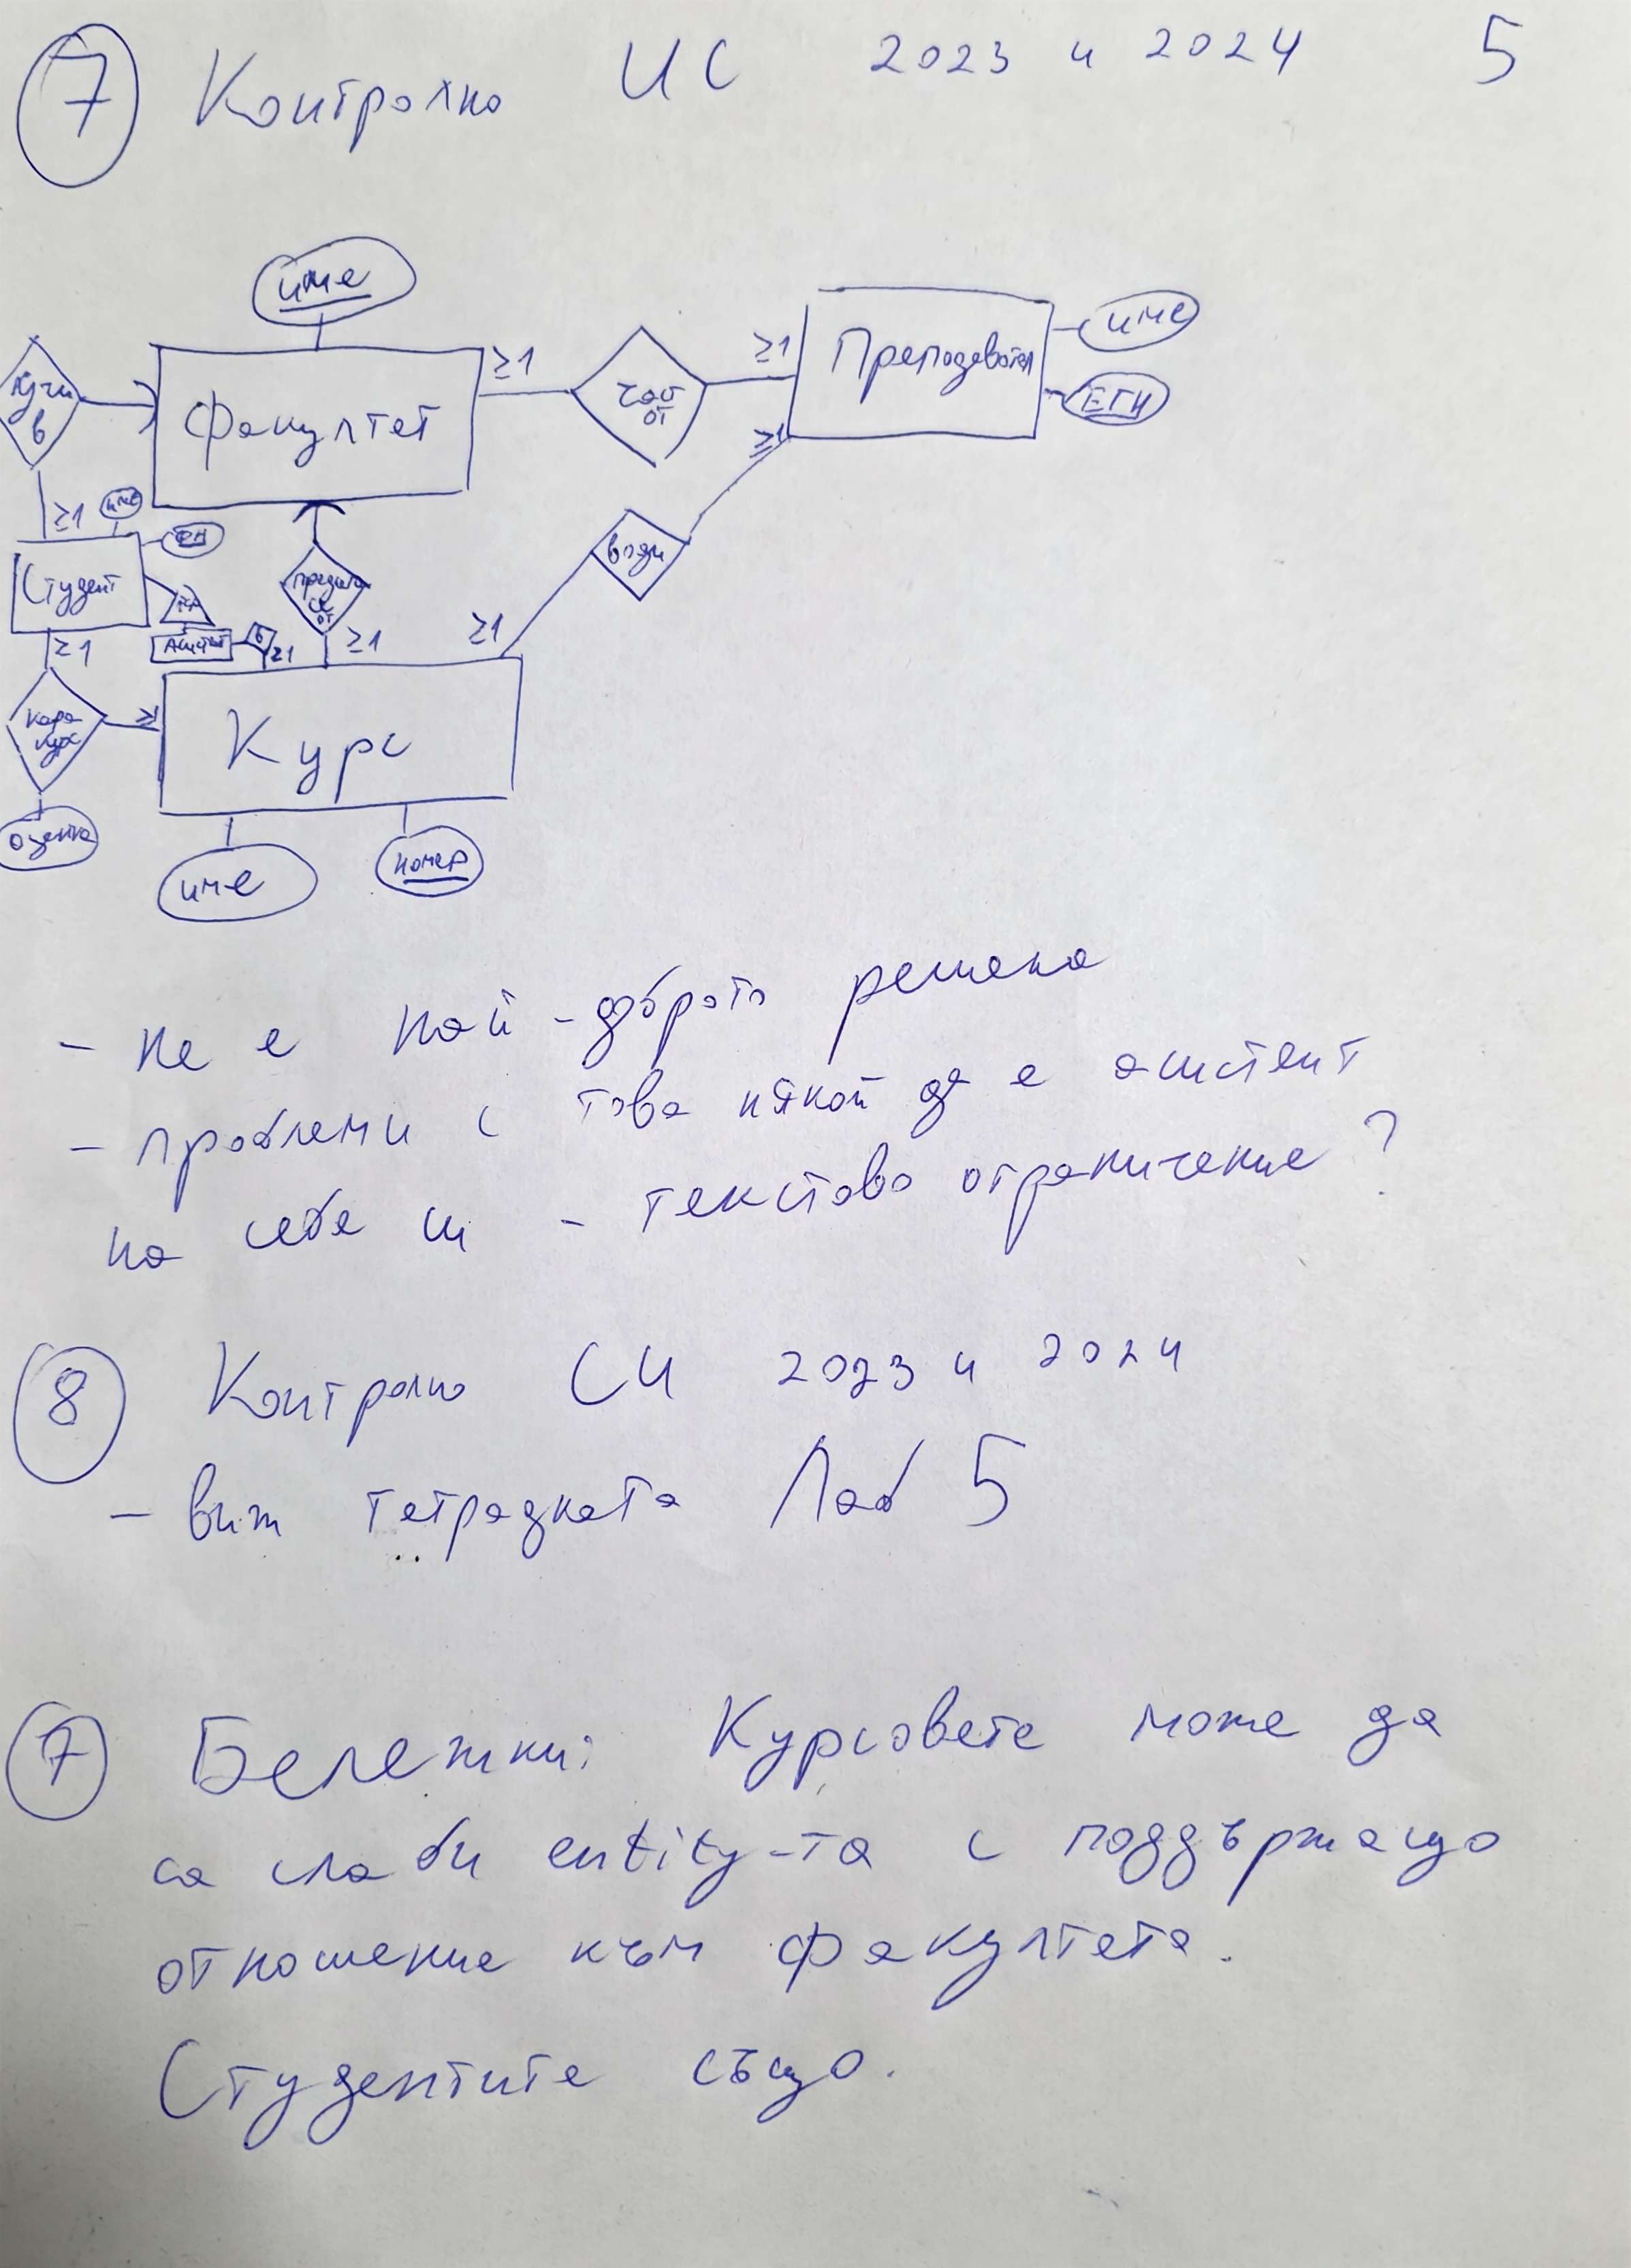 7 Контролно ИС 2023 и 2024 5
име
учи в
Факултет
≥1
част от
≥1
Преподавател
име
ЕГН
≥1
≥1
име
ФН
Студент
предлага се от
води
≥1
Асистент
в
≥1
≥1
≥1
кара курс
Курс
оценка
име
номер
- не е най-доброто решение
- проблеми с това някой да е асистент
на себе си - текстово ограничение?
8 Контролно СИ 2023 и 2024
- виж тетрадката Лаб 5
7 Бележки: Курсовете може да
са слаби entity-та с поддържащо
отношение към факултета.
Студентите също.